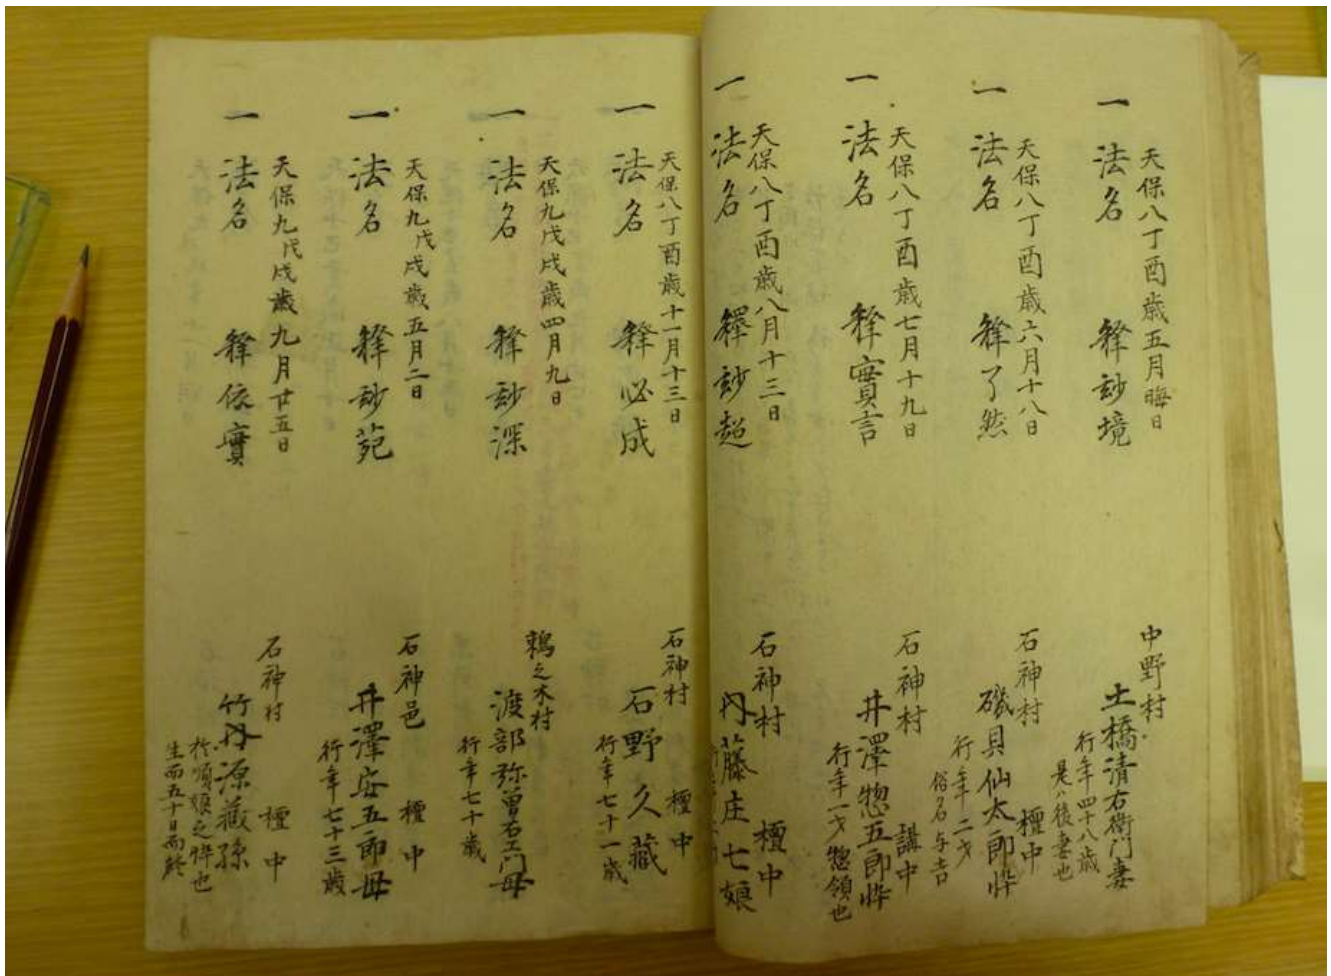 天保八丁酉歳五月晦日
一 法名 釋玅境
中野村
土橋清右衛門妻
行年四十八歳
是ハ後妻也
天保八丁酉歳六月十八日
一 法名 釋了然
石神村 檀中
磯貝仙太郎忰
行年二才
俗名与吉
天保八丁酉歳七月十九日
一 法名 釋實言
石神村 講中
井澤惣五郎忰
行年一才惣領也
天保八丁酉歳八月十三日
一 法名 釋玅超
石神村 檀中
内藤庄七娘
天保八丁酉歳十一月十三日
一 法名 釋必成
石神村 檀中
石野久藏
行年七十一歳
天保九戊戌歳四月九日
一 法名 釋玅深
鶉之木村
渡部弥曽右エ門母
行年七十歳
天保九戊戌歳五月二日
一 法名 釋玅苑
石神邑 檀中
井澤安五郎母
行年七十三歳
天保九戊戌歳九月廿五日
一 法名 釋依實
石神村 檀中
竹内源藏孫
於順娘之忰也
生而五十日而終